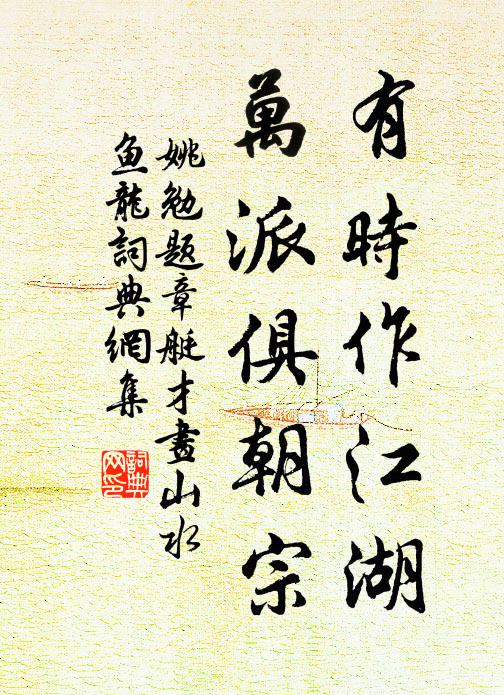 有時作江湖
萬派俱朝宗
姚勉題章艇才畫山水
鱼龍詞典網集
詞典网印